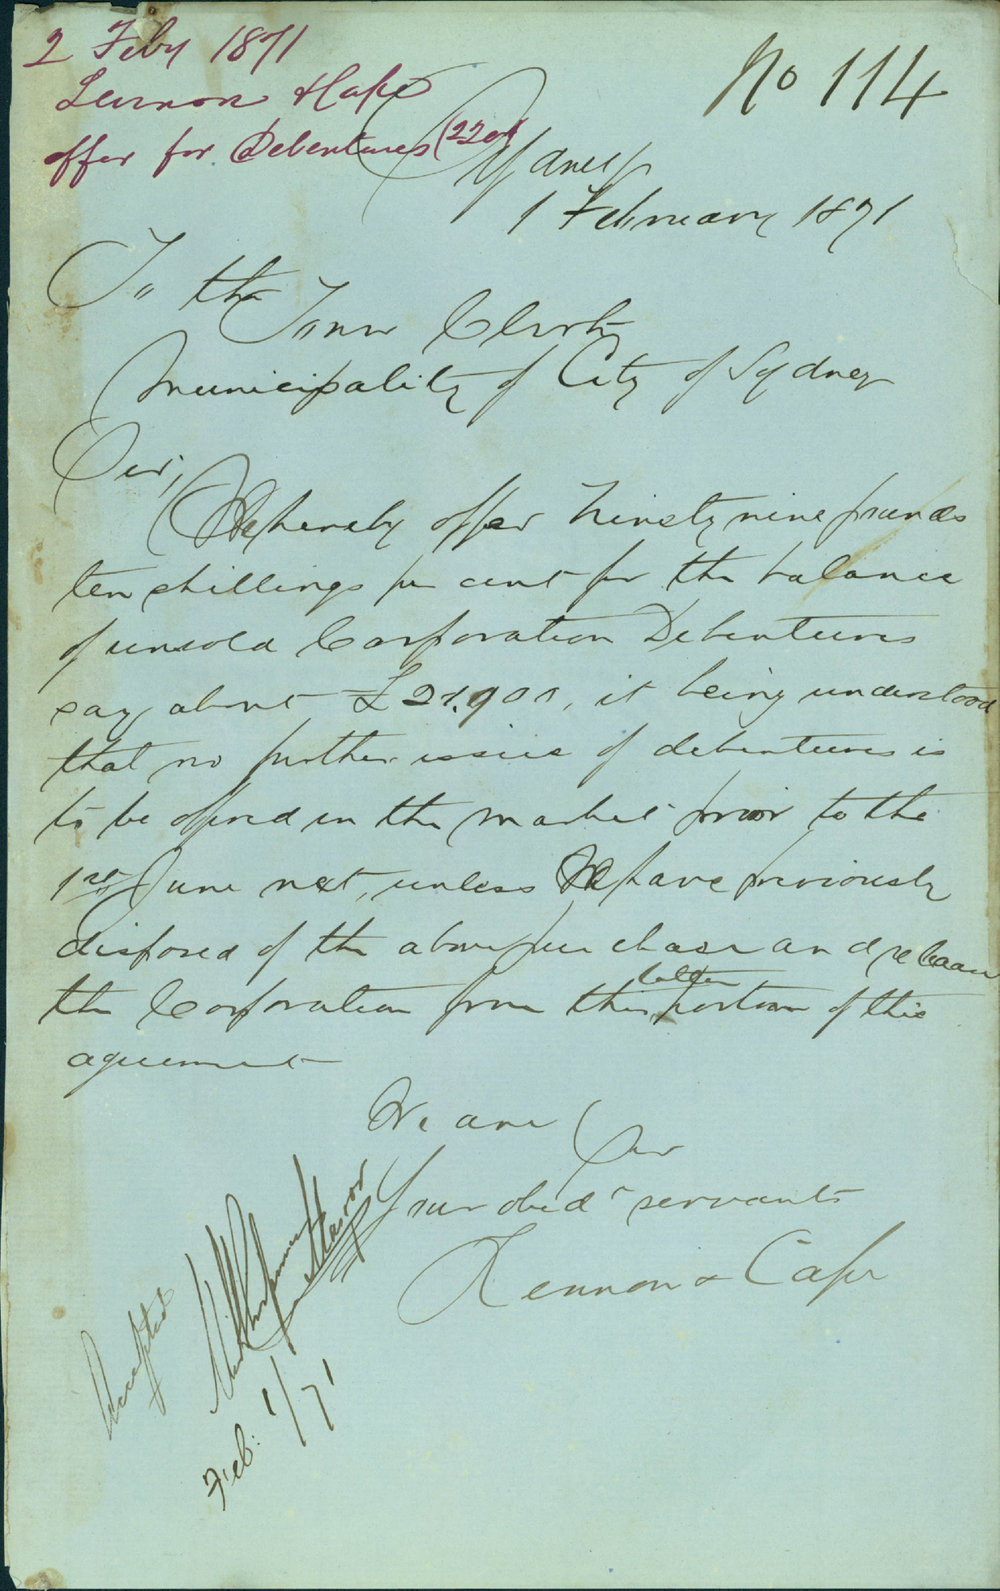 2 Feby 1871
Lennon & Cape
offer for Debentures (220
No 114
Sydney
1 February 1871
To the
Town Clerk
Municipality of City of Sydney
Sir,
We hereby offer Ninety nine pounds
ten shillings per cent for the balance
of unsold Corporation Debentures
say about £21.900, it being understood
that no further issue of debentures is
to be offered in the market prior to the
1st June next, unless We have previously
disposed of the above purchase and release
the Corporation from this latter portion of this
agreement
We are Sir
Your obedt servants
Lennon & Cape
Accepted
Mayor
Feb: 1/71